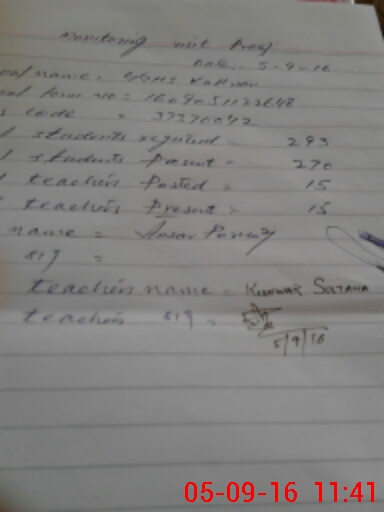 Monitoring visit Proof
Date:- 5-9-16
ool name = GGHS
ool form no = 1609051122648
s code = 37370042
l students regested = 293
l students Present = 270
l teachers Posted = 15
teachers Present = 15
name = Ansar Pervez
sig =
teachers name = Kishwar Sultana
teachers sig =
5/9/16
05-09-16 11:41